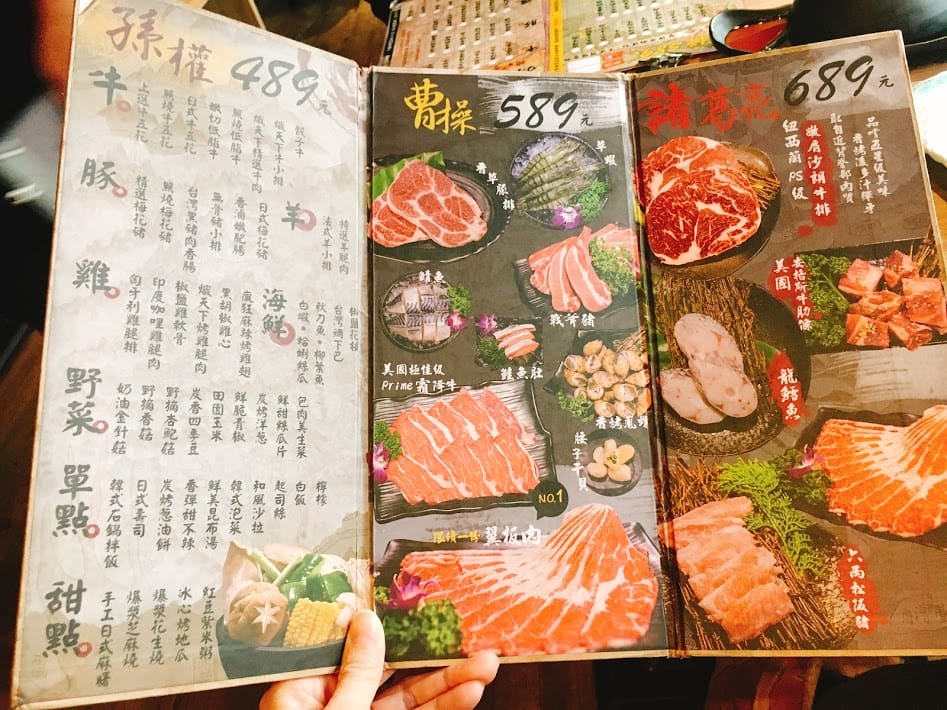 孫權 489元
牛。
骰子牛
熾天下牛小排
熾天下精選牛肉
嫩煎低脂牛
嫩切低脂牛
日式牛五花
厚燒牛五花
上選牛五花
豚。
日式梅花豬
香滷嫩肥腸
無骨豬小排
台灣黑豬肉香腸
厚燒梅花豬
精選梅花豬
羊。
精選羊腿肉
法式羊小排
雞。
瘋狂麻辣烤雞翅
黑胡椒雞心
熾天下烤雞腿肉
椒鹽雞軟骨
印度咖哩雞腿肉
匈牙利雞腿排
海鮮。
椒鹽花枝
台灣鯛下巴
秋刀魚·柳葉魚
白蝦·蛤蜊絲瓜
野菜。
包肉美生菜
鮮甜絲瓜片
炭烤洋蔥
鮮脆青椒
田園玉米
炭香四季豆
野摘杏鮑菇
野摘香菇
奶油金針菇
單點。
檸檬
白飯
起司絲
和風沙拉
韓式泡菜
鮮美昆布湯
香彈甜不辣
炭烤蔥油餅
日式壽司
韓式石鍋拌飯
甜點。
紅豆紫米粥
冰心烤地瓜
爆漿花生燒
爆漿芝麻燒
手工日式麻糬
曹操 589元
香草豚排
草蝦
鯖魚
戰斧豬
鮭魚肚
美國極佳級
Prime霜降牛
香烤鳳螺
腰子干貝
NO.1
限續一份 翼板肉
諸葛亮 689元
品嚐五星級美味
香烤後多汁彈牙
取自近肩脊部肉質
嫩肩沙朗牛排
紐西蘭PS級
美國
安格斯牛肋條
龍鱈魚
六兩松阪豬